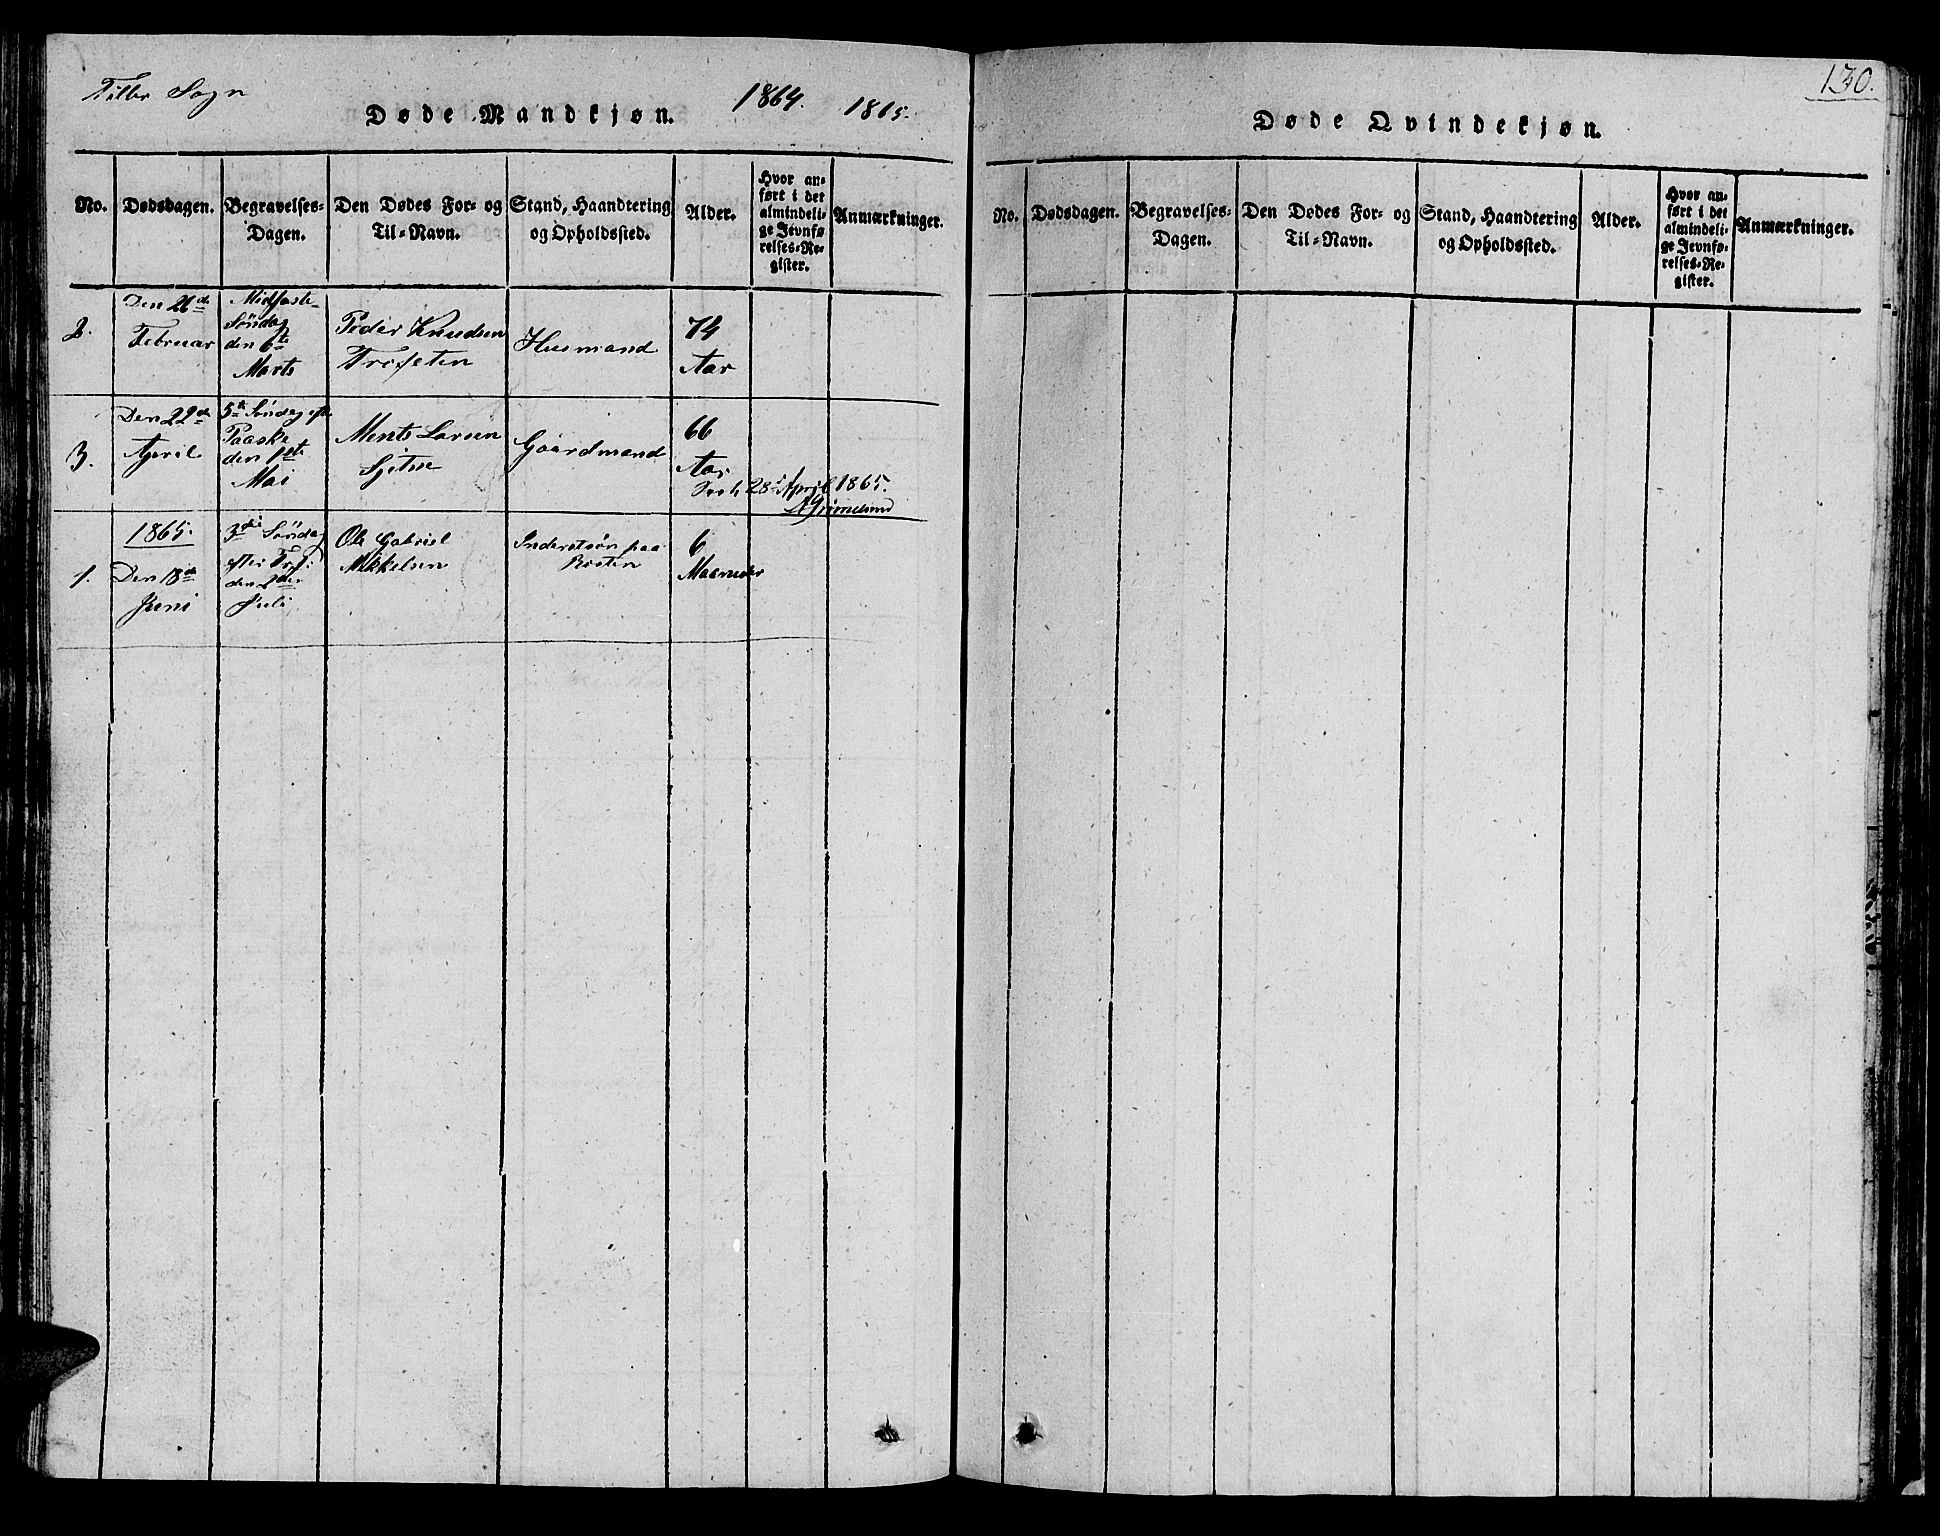 Tiller Sogn
Døde Mandkjøn.
1864. 1865.
No.
Dødsdagen.
Begravelses-
Dagen.
Den Dødes For- og
Til-Navn.
Stand, Haandtering
og Opholdssted.
Alder.
Hvor an-
ført i det
almindeli-
ge Jevnfø-
relses-Re-
gister.
Anmærkninger.
2.
Den 26de
Februar
Midfaste-
Søndag
den 6te
Marts
Peder Knudsen
Husmand
74
Aar
3.
Den 22de
April
5te Søndag eft.
Paaske
den 1ste
Mai
Ments Larsen
Sjetne
Gaardmand
66
Aar
28de April 1865.
AGrimelund
1.
1865.
Den 18de
Juni
3die Søndag
efter Tref:
den 2den
Juli
Ole Gabriel
Mikkelsen
Inderstsøn paa
Rosten
6
Maaneder
130.
Døde Qvindekjøn.
No.
Dødsdagen.
Begravelses-
Dagen.
Den Dødes For- og
Til-Navn.
Stand, Haandtering
og Opholdssted.
Alder.
Hvor an-
ført i det
almindeli-
ge Jevnfø-
relses-Re-
gister.
Anmærkninger.